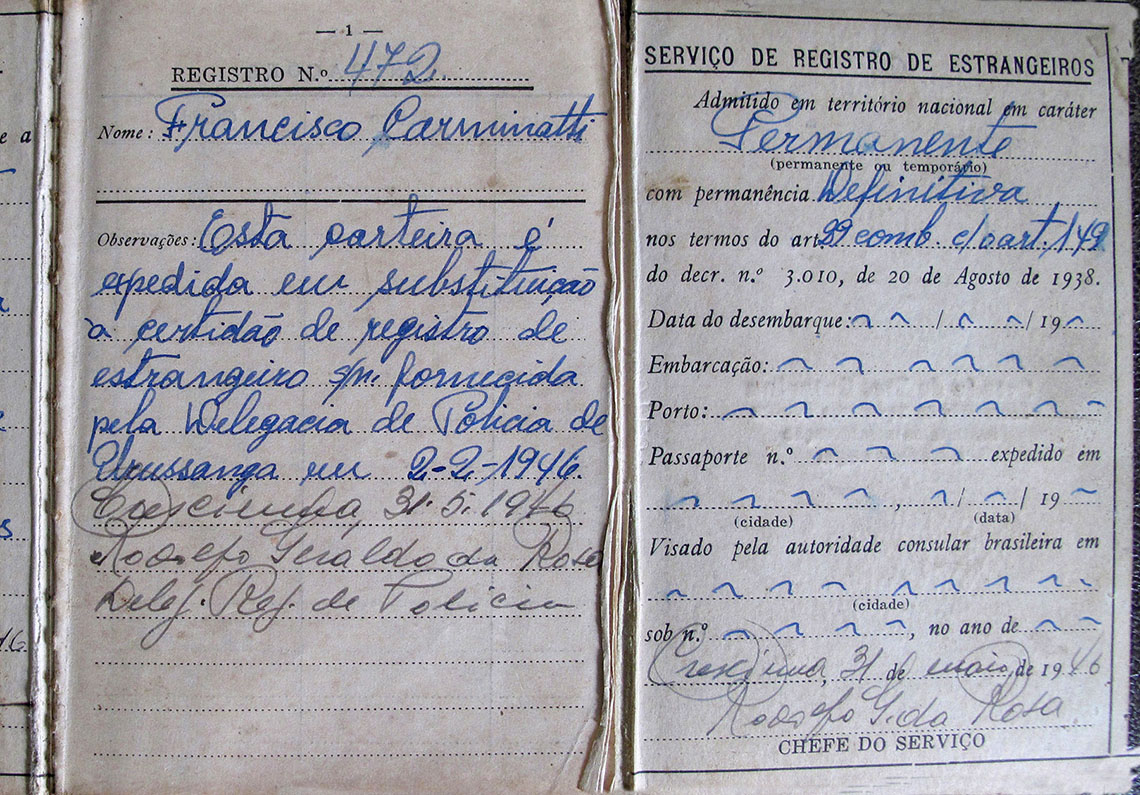 — 1 —
REGISTRO N.º 472
Nome: Francisco Carminatti
Observações: Esta carteira é
expedida em substituição
à certidão de registro de
estrangeiro s/n. fornecida
pela Delegacia de Policia de
Urussanga em 2-2-1946.
Cresciuma, 31.5.1946
Rodolfo Geraldo da Rosa
Deleg. Reg. de Policia
SERVIÇO DE REGISTRO DE ESTRANGEIROS
Admitido em território nacional em caráter
Permanente
(permanente ou temporário)
com permanência Definitiva
nos termos do art. 29 comb c/o art. 149
do decr. n.º 3.010, de 20 de Agosto de 1938.
Data do desembarque: / / 19
Embarcação:
Porto:
Passaporte n.º expedido em
, / / 19
(cidade) (data)
Visado pela autoridade consular brasileira em
(cidade)
sob n.º , no ano de
Cresciuma, 31 de maio, de 1946
Rodolfo G. da Rosa
CHEFE DO SERVIÇO